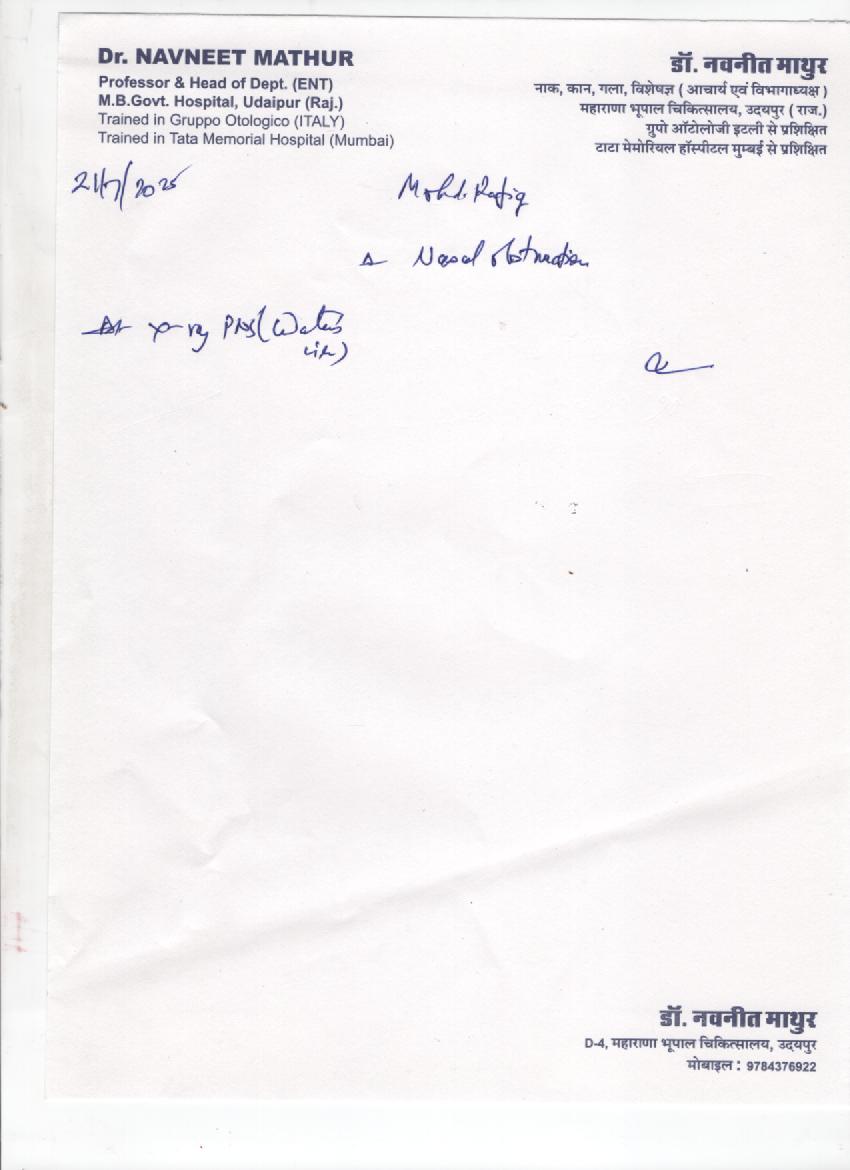 Dr. NAVNEET MATHUR
Professor & Head of Dept. (ENT)
M.B.Govt. Hospital, Udaipur (Raj.)
Trained in Gruppo Otologico (ITALY)
Trained in Tata Memorial Hospital (Mumbai)
डॉ. नवनीत माथुर
नाक, कान, गला, विशेषज्ञ ( आचार्य एवं विभागाध्यक्ष )
महाराणा भूपाल चिकित्सालय, उदयपुर ( राज.)
ग्रुपो ऑटोलोजी इटली से प्रशिक्षित
टाटा मेमोरियल हॉस्पीटल मुम्बई से प्रशिक्षित
21/7/2025
Mohd. Rafiq
Δ Nasal obstruction
X-ray PNS (Water's
डॉ. नवनीत माथुर
D-4, महाराणा भूपाल चिकित्सालय, उदयपुर
मोबाइल : 9784376922